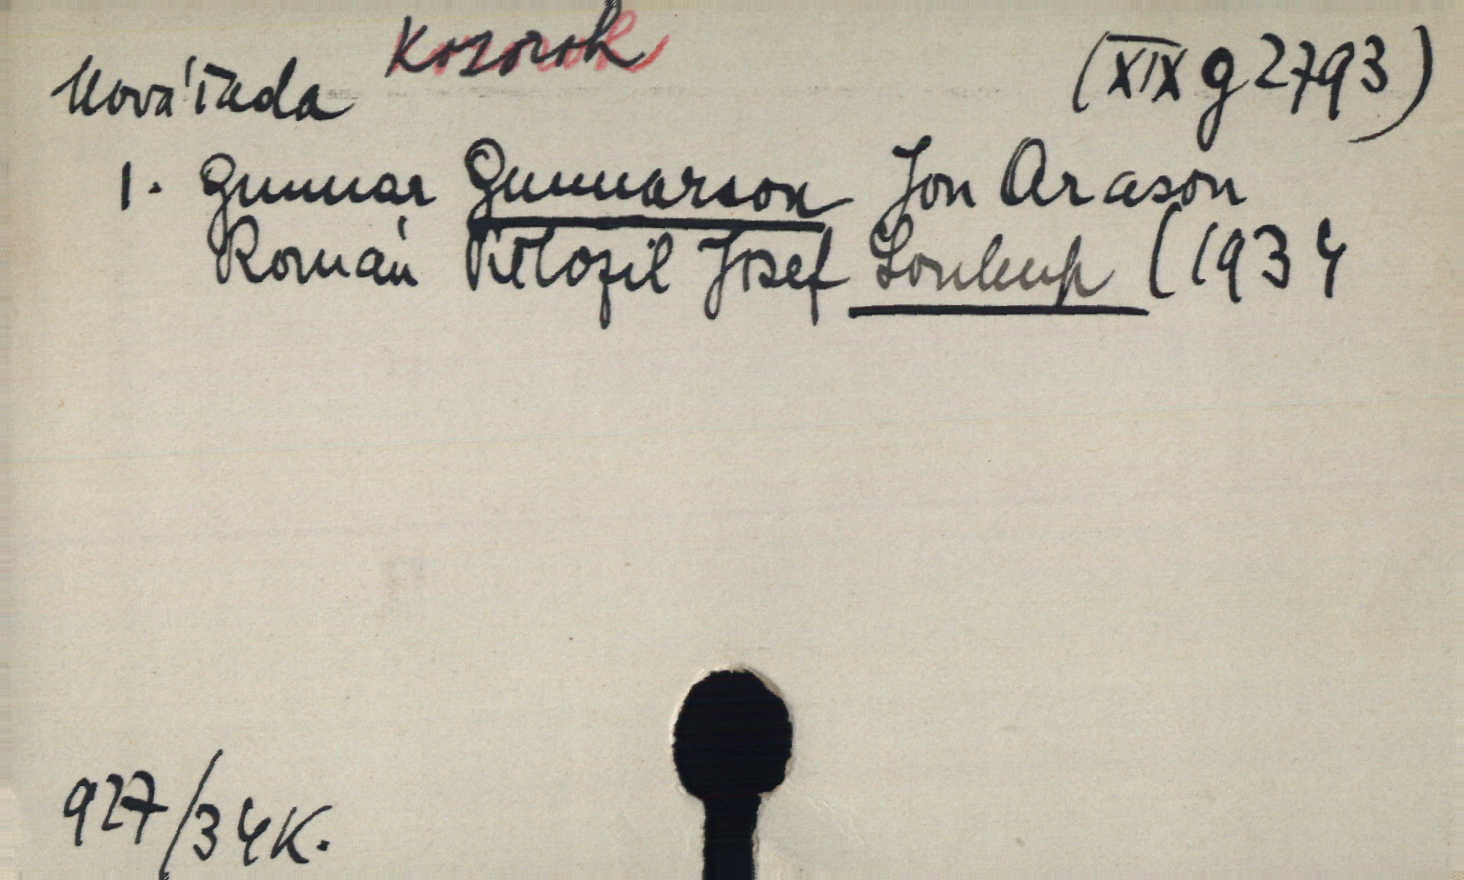 Kozoroh
Nová řada
(XIX g 2793)
1. Gunnar Gunnarson Jon Arason
Román Přeložil Josef Soukup (1934
927/34K.